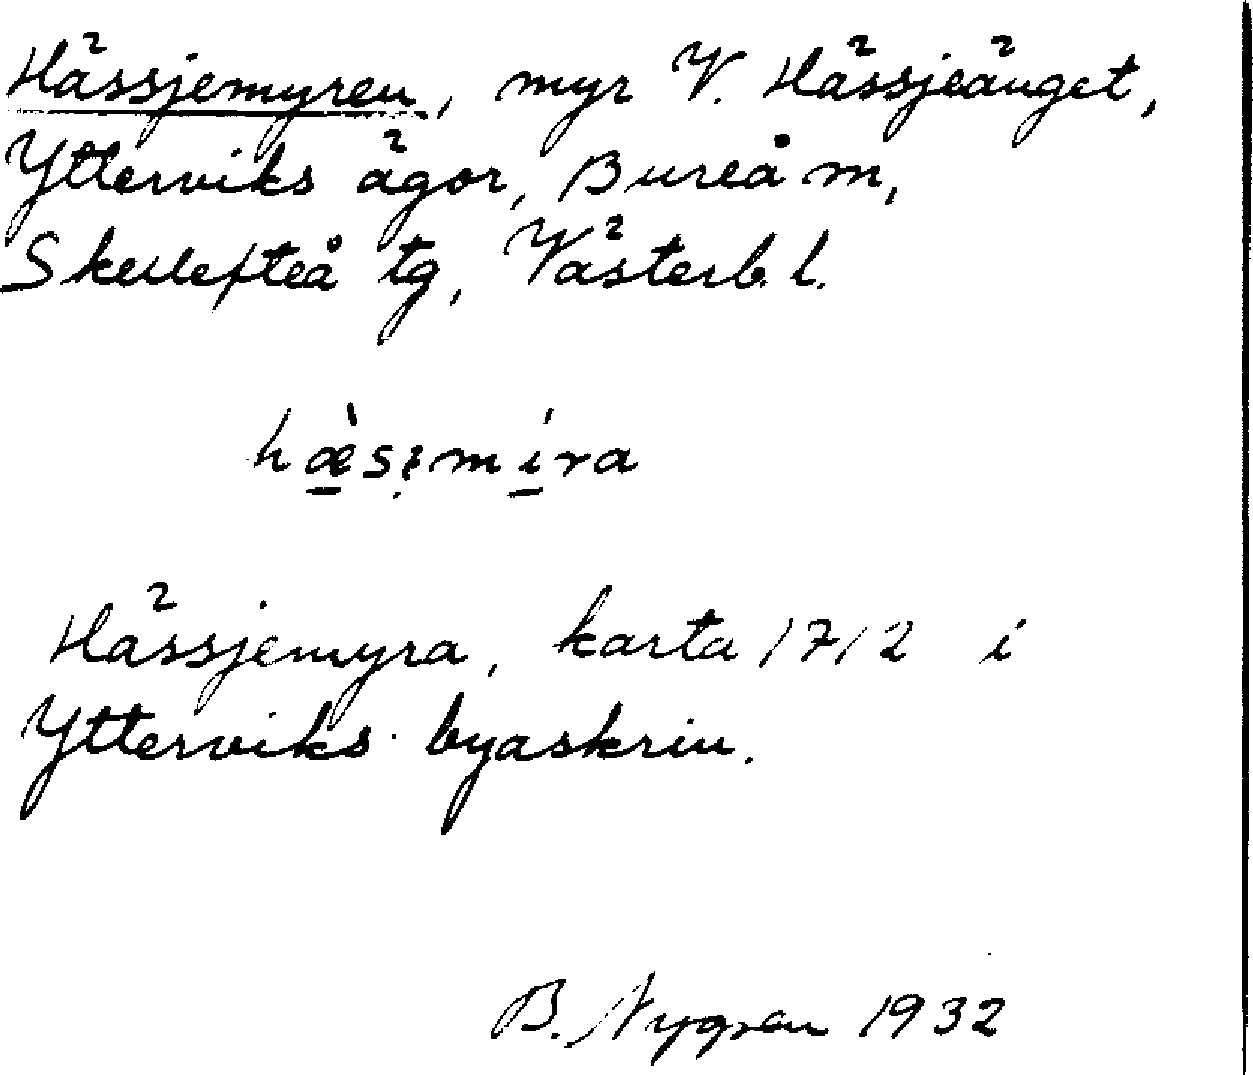 Hässjemyren, myr V. Hässjeänget,
Ytterviks ägor, Bureå m,
Skellefteå tg, Västerb. l.
Hässjemyra, karta 1712 i
Ytterviks byaskrin.
B. Nygren 1932